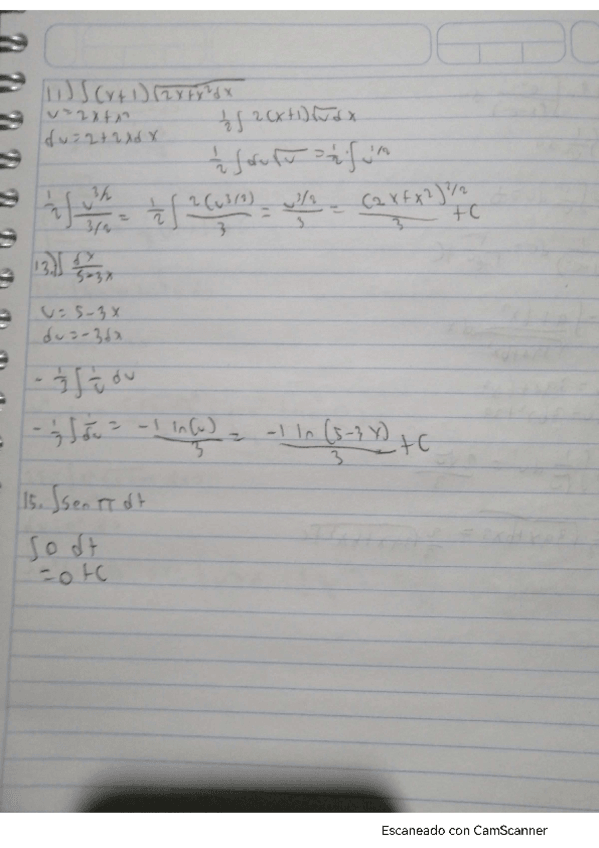 11) ∫(x+1)√2x+x² dx
u=2x+x²
du=2+2xdx
½∫2(x+1)√u dx
½∫du√u = ½·∫u^1/2
½∫u^3/2 / 3/2 = ½∫2(u^3/2)/3 = u^3/2 / 3 = (2x+x²)^3/2 / 3 + C
13.)∫dx/5-3x
u=5-3x
du=-3dx
-⅓∫1/u du
-⅓∫1/du = -1 ln(u)/3 = -1 ln(5-3x)/3 + C
15. ∫sen π dt
∫0 dt
=0+C
Escaneado con CamScanner